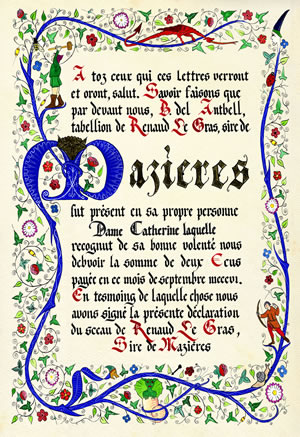 A toz ceux qui ces lettres verront
et oront, salut. Savoir faisons que
par devant nous, B. del Antbell,
tabellion de Renaud Le Gras, sire de
Mazieres
fut présent en sa propre personne
Dame Catherine laquelle
recognut de sa bonne volenté nous
debvoir la somme de deux Ecus
payée en ce mois de septembre mccvi.
En tesmoing de laquelle chose nous
avons signé la présente déclaration
du sceau de Renaud Le Gras,
Sire de Mazières